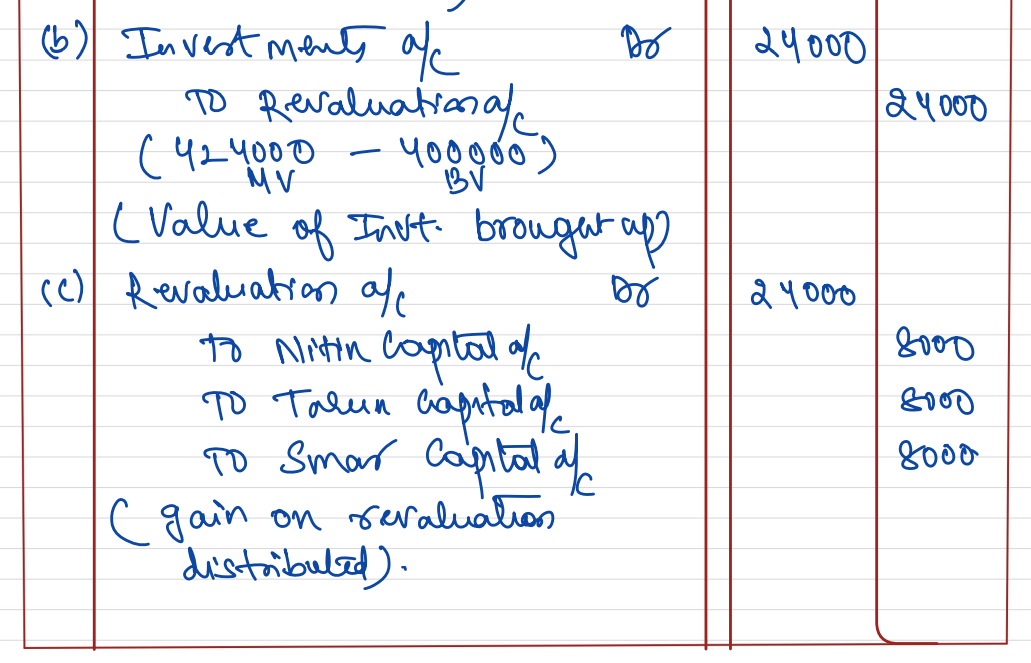 (b) Investments a/c Dr 24000
To Revaluation a/c 24000
(424000 - 400000)
MV BV
(Value of Invt. brought up)
(c) Revaluation a/c Dr 24000
To Nitin Capital a/c 8000
To Tarun Capital a/c 8000
To Smar Capital a/c 8000
(gain on revaluation
distributed).